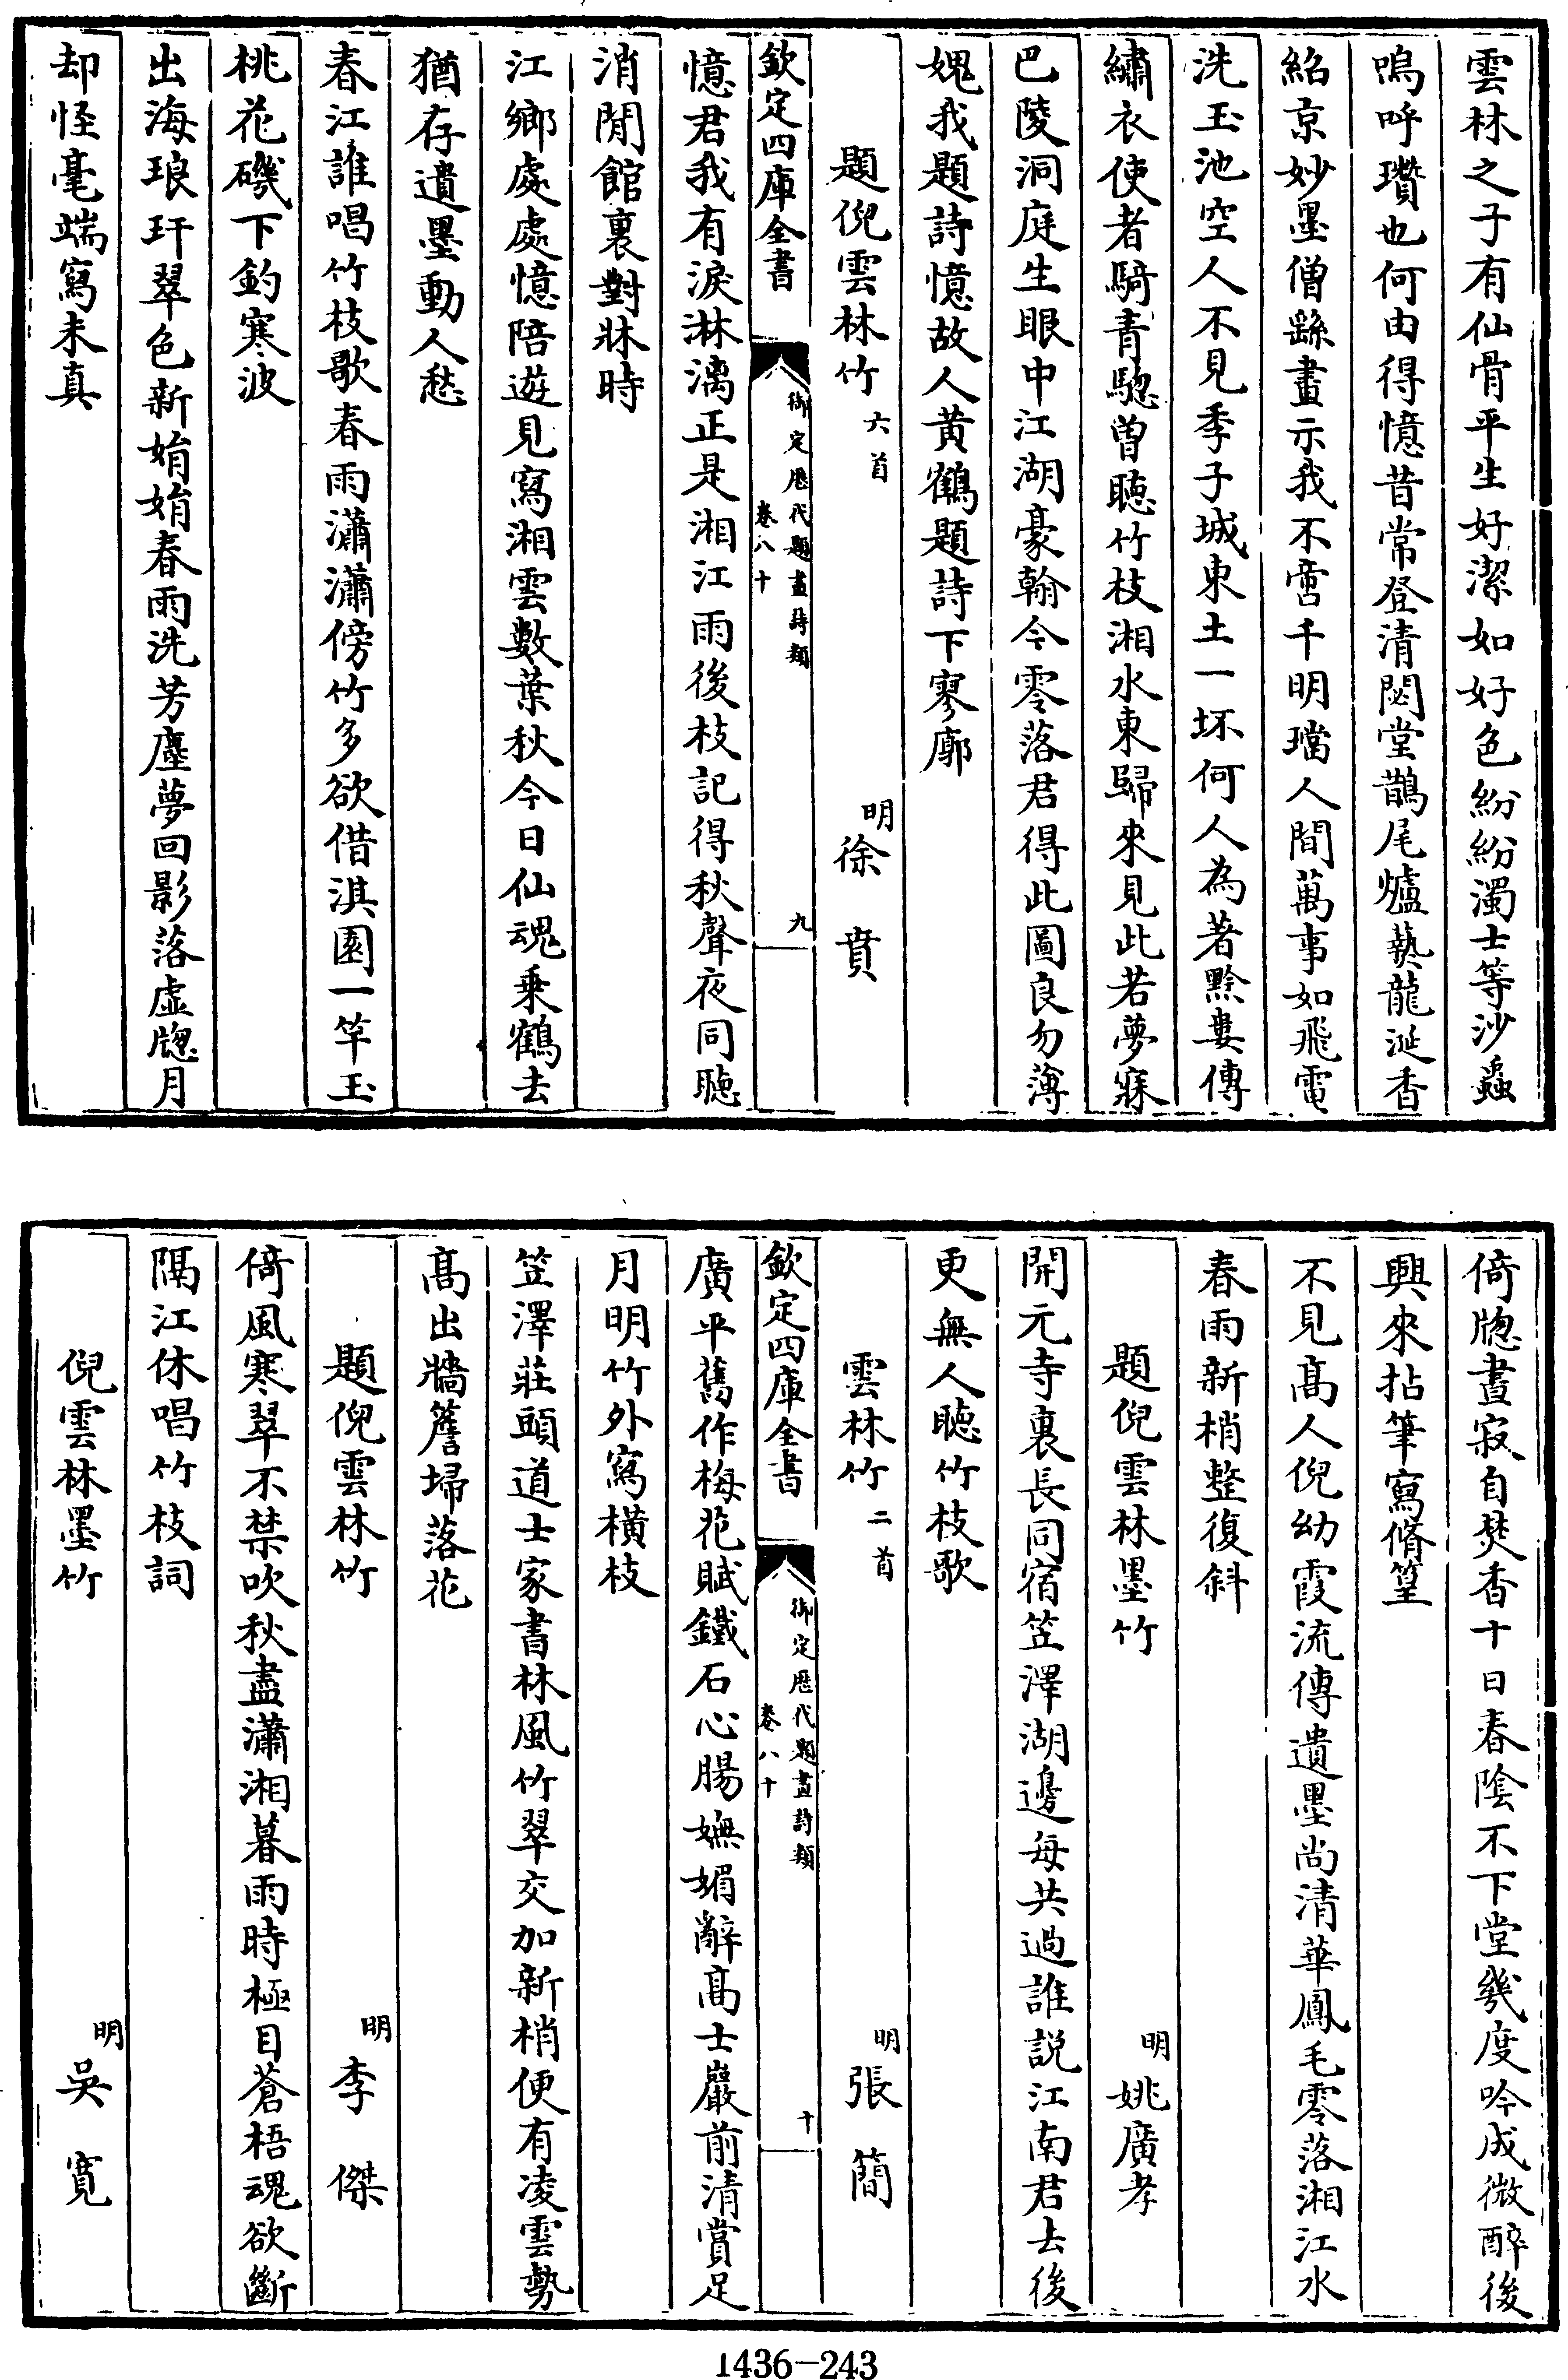 雲林之子有仙骨平生好潔如好色紛紛濁士等沙蟲
嗚呼瓚也何由得憶昔常登清閟堂鵲尾爐爇龍涎香
紹京妙墨僧繇畫示我不啻千明璫人間萬事如飛電
洗玉池空人不見季子城東土一坏何人為著黔婁傳
繡衣使者騎青驄曾聴竹枝湘水東歸來見此若夢寐
巴陵洞庭生眼中江湖豪翰今零落君得此圖良勿薄
媿我題詩憶故人黄鶴題詩下寥廓
題倪雲林竹 六首 明 徐賁
欽定四庫全書
御定歴代題畫詩類
卷八十
九
憶君我有淚淋漓正是湘江雨後枝記得秋聲夜同聴
消閒館裏對牀時
江鄉處處憶陪遊見寫湘雲數葉秋今日仙魂乗鶴去
猶存遺墨動人愁
春江誰唱竹枝歌春雨瀟瀟傍竹多欲借淇園一竿玉
桃花磯下釣寒波
出海琅玕翠色新娟娟春雨洗芳塵夢回影落虛牎月
却怪毫端寫未真
倚牎晝寂自焚香十日春陰不下堂幾度吟成微醉後
興來拈筆寫脩篁
不見髙人倪幼霞流傳遺墨尚清華鳳毛零落湘江水
春雨新梢整復斜
題倪雲林墨竹 明 姚廣孝
開元寺裏長同宿笠澤湖邊每共過誰説江南君去後
更無人聴竹枝歌
雲林竹 二首 明 張簡
欽定四庫全書
御定歴代題畫詩類
卷八十
十
廣平舊作梅花賦鐵石心腸嫵媚辭髙士巖前清賞足
月明竹外寫橫枝
笠澤莊頭道士家書林風竹翠交加新梢便有凌雲勢
髙出牆簷埽落花
題倪雲林竹 明 李傑
倚風寒翠不禁吹秋盡瀟湘暮雨時極目蒼梧魂欲斷
隔江休唱竹枝詞
倪雲林墨竹 明 吳寛
1436-243